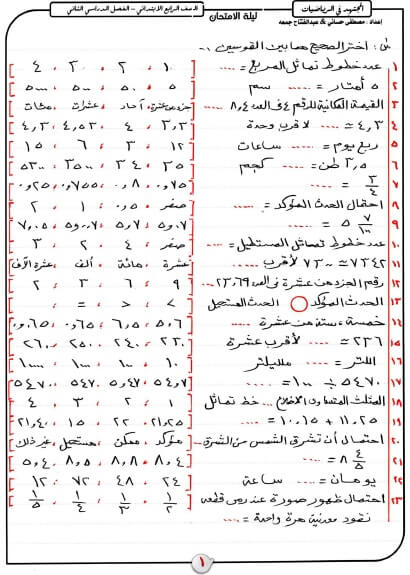 المتميز فى الرياضيات
ليلة الامتحان
الصف الرابع الابتدائى - الفصل الدراسى الثانى
إعداد: مصطفى حسانى & عبدالفتاح جمعه
س١: اختر الصحيح مما بين القوسين :-
١ عدد خطوط تماثل المربع = .... [ ١ ، ٢ ، ٣ ، ٤ ]
٢ ٥ أمتار = .... سم [ ٥ ، ٥٠ ، ٥٠٠ ، ٥٠٠٠ ]
٣ القيمة المكانية للرقم ٤ فى العدد ٨,٤ [ جزء من عشرة ، آحاد ، عشرات ، مئات ]
٤ ٤,٣ ≃ .... لأقرب وحدة [ ٣,٣ ، ٤ ، ٤,٥٣ ، ٤,٣ ]
٥ ربع يوم = .... ساعات [ ١٢ ، ٣ ، ٦ ، ١٥ ]
٦ ٣,٥ طن = .... كجم [ ٣٥ ، ٣٤ ، ٣٥٠٠ ، ٥٣٠٠ ]
٧ ٣/٤ = .... [ ٠,٧٥ ، ٠,٨ ، ٠,٧٥٥ ، ٠,٢٥ ]
٨ احتمال الحدث المؤكد = .... [ صفر ، ٠,٥ ، ١ ، ٢ ]
٩ ٥ ٧/١٠٠ = .... [ ٥,٠٧ ، ٥,٧ ، ٥,٠٠٧ ، ٧,٠٥ ]
١٠ عدد خطوط تماثل المستطيل = .... [ صفر ، ٤ ، ٢ ، ٣ ]
١١ ٧٢٤٢ ≃ ٧٢٠٠ لأقرب .... [ عشرة ، مائة ، ألف ، عشرة آلاف ]
١٢ رقم الجزء من عشرة فى العدد ٢٣,٦٩ [ ٩ ، ٦ ، ٣ ، ٢ ]
١٣ الحدث المؤكد ○ الحدث المستحيل [ > ، < ، = ]
١٤ خمسة ، ستة من عشرة = .... [ ٥,٠٦ ، ٥,٦ ، ٦,٥ ، ٠,٦٥ ]
١٥ ٢٣٦ ≃ .... لأقرب عشرة [ ٢٣٠ ، ٢٤٠ ، ٢٥٠ ، ٢٦٠ ]
١٦ اللتر = .... ملليلتر [ ١٠ ، ١٠٠ ، ١٠٠٠ ، ١٠٠٠٠ ]
١٧ ٥٤٧٠ ÷ ١٠٠ = .... [ ٥٤,٧ ، ٥,٤٧ ، ٥٤٧٠ ، ٥٤٧٠٠ ]
١٨ المثلث المتساوى الأضلاع .... خط تماثل [ ١ ، ٢ ، ٣ ، ٤ ]
١٩ ١١,٢٥ + ١٠,١٥ = .... [ ٢١,٢٥ ، ٢٢ ، ١٥ ، ٢١,٤٠ ]
٢٠ احتمال أن تشرق الشمس من الشرق .... [ مؤكد ، ممكن ، مستحيل ، غير ذلك ]
٢١ ٨ ٤/٥ = .... [ ٨,٤ ، ٨,٨ ، ٨,٥ ، ٥,٤ ]
٢٢ يومان = .... ساعة [ ٢٤ ، ٤٨ ، ٧٢ ، ١٢ ]
٢٣ احتمال ظهور صورة عند رمى قطعة [ ١/٢ ، ١/٣ ، ١/٤ ، ١/٥ ]
نقود معدنية مرة واحدة = ....
١